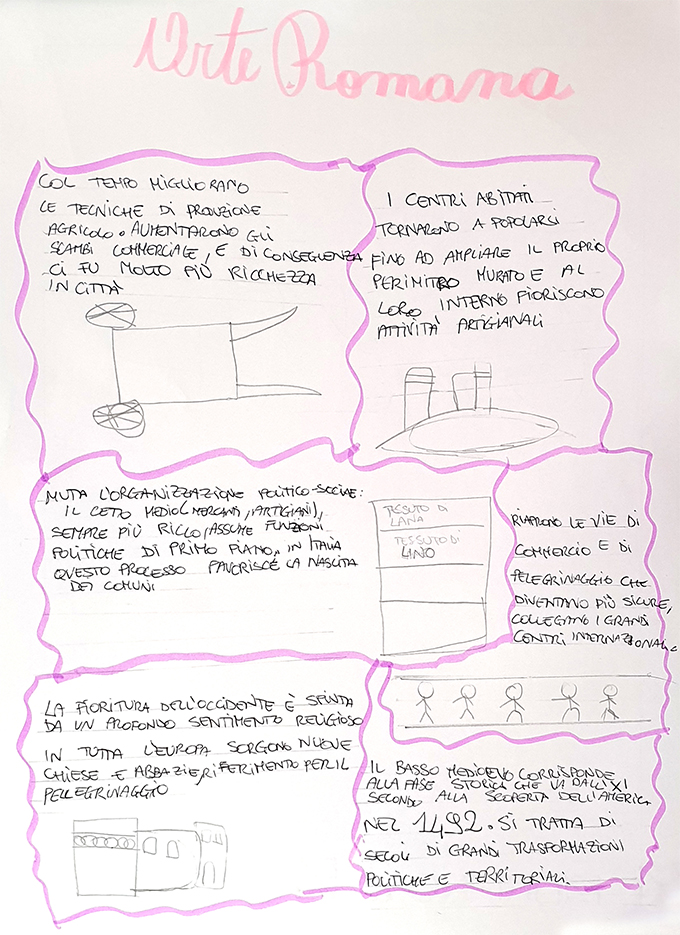 Arte Romana
COL TEMPO MIGLIORANO
LE TECNICHE DI PROUZIONE
AGRICOLO. AUMENTARONO GLI
SCAMBI COMMERCIALE, E DI CONSEGUENZA
CI FU MOLTO PIÙ RICCHEZZA
IN CITTÀ
I CENTRI ABITATI
TORNARONO A POPOLARCI
FINO AD AMPLIARE IL PROPRIO
PERIMITRO MURATO E AL
LORO INTERNO FIORISCONO
ATTIVITÀ ARTIGIANALI
MUTA L'ORGANIZZAZIONE POLITICO-SOCIALE:
IL CETO MEDIO (MERCANTI, ARTIGIANI),
SEMPRE PIÙ RICCO, ASSUME FUNZIONI
POLITICHE DI PRIMO PIANO, IN ITALIA
QUESTO PROCESSO FAVORISCE LA NASCITA
DEI COMUNI
TESSUTO DI
LANA
TESSUTO DI
LINO
RIAPRONO LE VIE DI
COMMERCIO E DI
PELEGRINAGGIO CHE
DIVENTANO PIÙ SICURE,
COLLEGANO I GRANDI
CENTRI INTERNAZIONALI
LA FIORITURA DELL'OCCIDENTE È SPINTA
DA UN PROFONDO SENTIMENTO RELIGIOSO
IN TUTTA L'EUROPA SORGONO NUOVE
CHIESE E ABBAZIE, RIFERIMENTO PER IL
PELLEGRINAGGIO
IL BASSO MEDIOEVO CORRISPONDE
ALLA FASE STORICA CHE VA DALL'XI
SECONDO ALLA SCOPERTA DELL'AMERICA
NEL 1492. SI TRATTA DI
SECOLI DI GRANDI TRASFORMAZIONI
POLITICHE E TERRITORIALI.